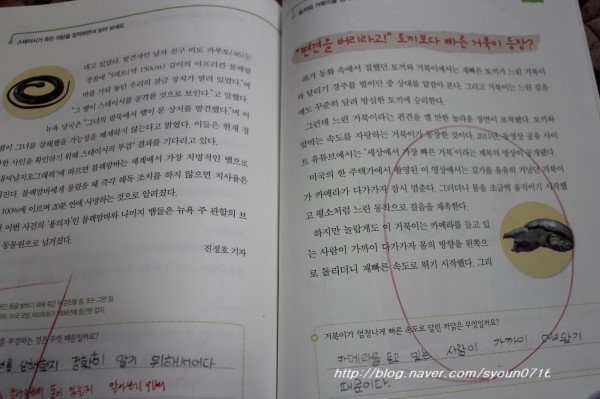 스테이시가 죽은 까닭을 짐작하면서 읽어 보세요.
대고 있었다. 발견자인 남자 친구 비토 카푸토(46)는
경찰에 "5피트(약 150cm) 길이의 아프리칸 블랙맘
바를 가둬 놓던 우리의 잠금 장치가 열려 있었다."며
"그 뱀이 스테이시를 공격한 것으로 보인다."고 말했다.
뉴욕 당국은 "그녀의 팔뚝에서 뱀이 문 상처를 발견했다."며 이
뱀이 그녀를 살해했을 가능성을 배제하지 않는다고 밝혔다. 이들은 현재 정
확한 사인을 확인하기 위해 스테이시의 부검 결과를 기다리고 있다.
에 따르면 블랙맘바는 세계에서 가장 치명적인 뱀으로
블랙맘바에게 물렸을 때 즉각 해독 조치를 하지 않으면 치사율은
100%에 이르며 20분 안에 사망하는 것으로 알려졌다.
이번 사건의 '용의자'인 블랙맘바와 나머지 뱀들은 뉴욕 주 관할의 브
동물원으로 넘겨졌다.
진정호 기자
부검하는 것은 무엇 때문일까요?
정확히 알기 위해서이다
"편견을 버리라고!" 토끼보다 빠른 거북이 등장?
과거 동화 속에서 접했던 토끼와 거북이에서는 재빠른 토끼가 느린 거북이
와 달리기 경주를 벌이던 중 상대를 얕잡아 본다. 그리고 거북이는 느린 걸음
에도 꾸준히 달려 방심한 토끼에 승리한다.
그런데 느린 거북이라는 편견을 깰 만한 놀라운 장면이 포착됐다. 토끼와
맞먹는 속도를 자랑하는 거북이가 등장한 것이다. 2011년, 동영상 공유 사이
트 유튜브에서는 '세상에서 가장 빠른 거북'이라는 제목의 영상이 공개됐다.
미국의 한 주택가에서 촬영된 이 영상에서는 길가를 유유히 거닐던 거북이
가 카메라가 다가가자 잠시 멈춘다. 그러더니 몸을 조금씩 움직이기 시작했
고 평소처럼 느린 동작으로 걸음을 재촉한다.
하지만 놀랍게도 이 거북이는 카메라를 들고 있
는 사람이 가까이 다가가자 몸의 방향을 왼쪽으
로 돌리더니 재빠른 속도로 뛰기 시작했다. 그리
거북이가 엄청나게 빠른 속도로 달린 까닭은 무엇일까요?
카메라를 들고 있는 사람이 가까이 다가왔기
때문이다.
http://blog.naver.com/syoun0716